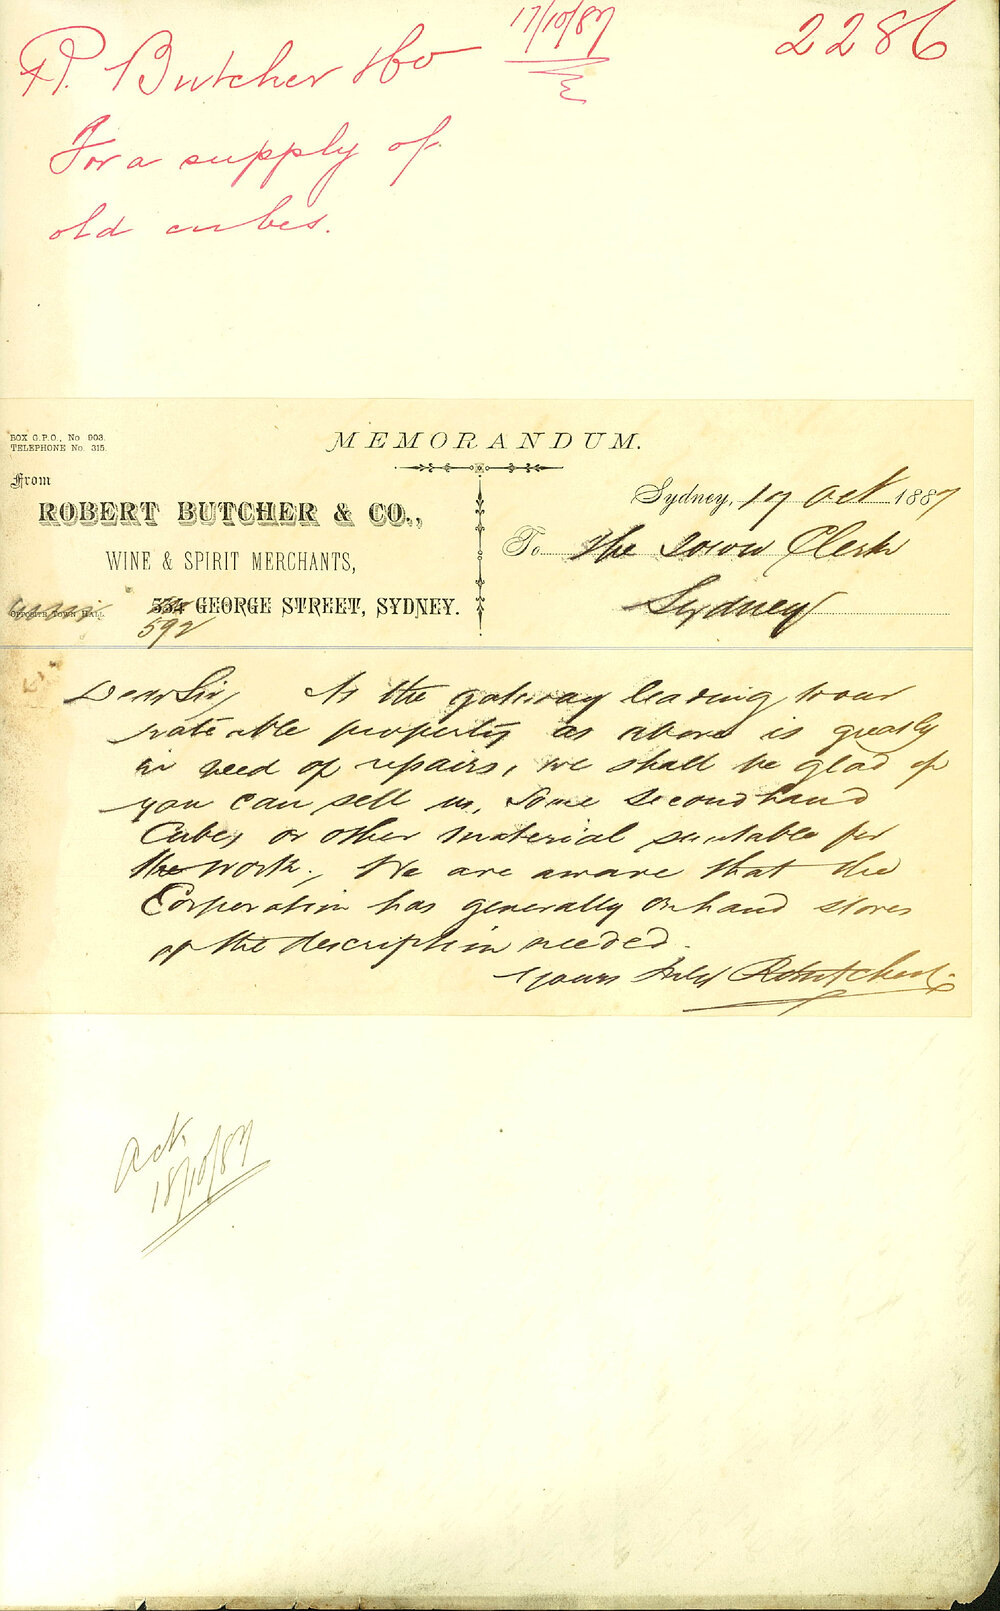 17/10/87
2286
R. Butcher & Co
For a supply of
old cubes.
BOX G.P.O., No 903.
TELEPHONE No. 315.
MEMORANDUM.
From
ROBERT BUTCHER & CO.,
WINE & SPIRIT MERCHANTS,
OPPOSITE TOWN HALL.
534 GEORGE STREET, SYDNEY.
592
Sydney, 17 Oct 1887
To The Town Clerk
Sydney
Dear Sir, As the gateway leading to our
rateable property as above is greatly
in need of repairs, we shall be glad if
you can sell us, some secondhand
Cubes or other material suitable for
the work. We are aware that the
Corporation has generally on hand stores
of the description needed.
Yours RButcher & Co
Ack.
18/10/87